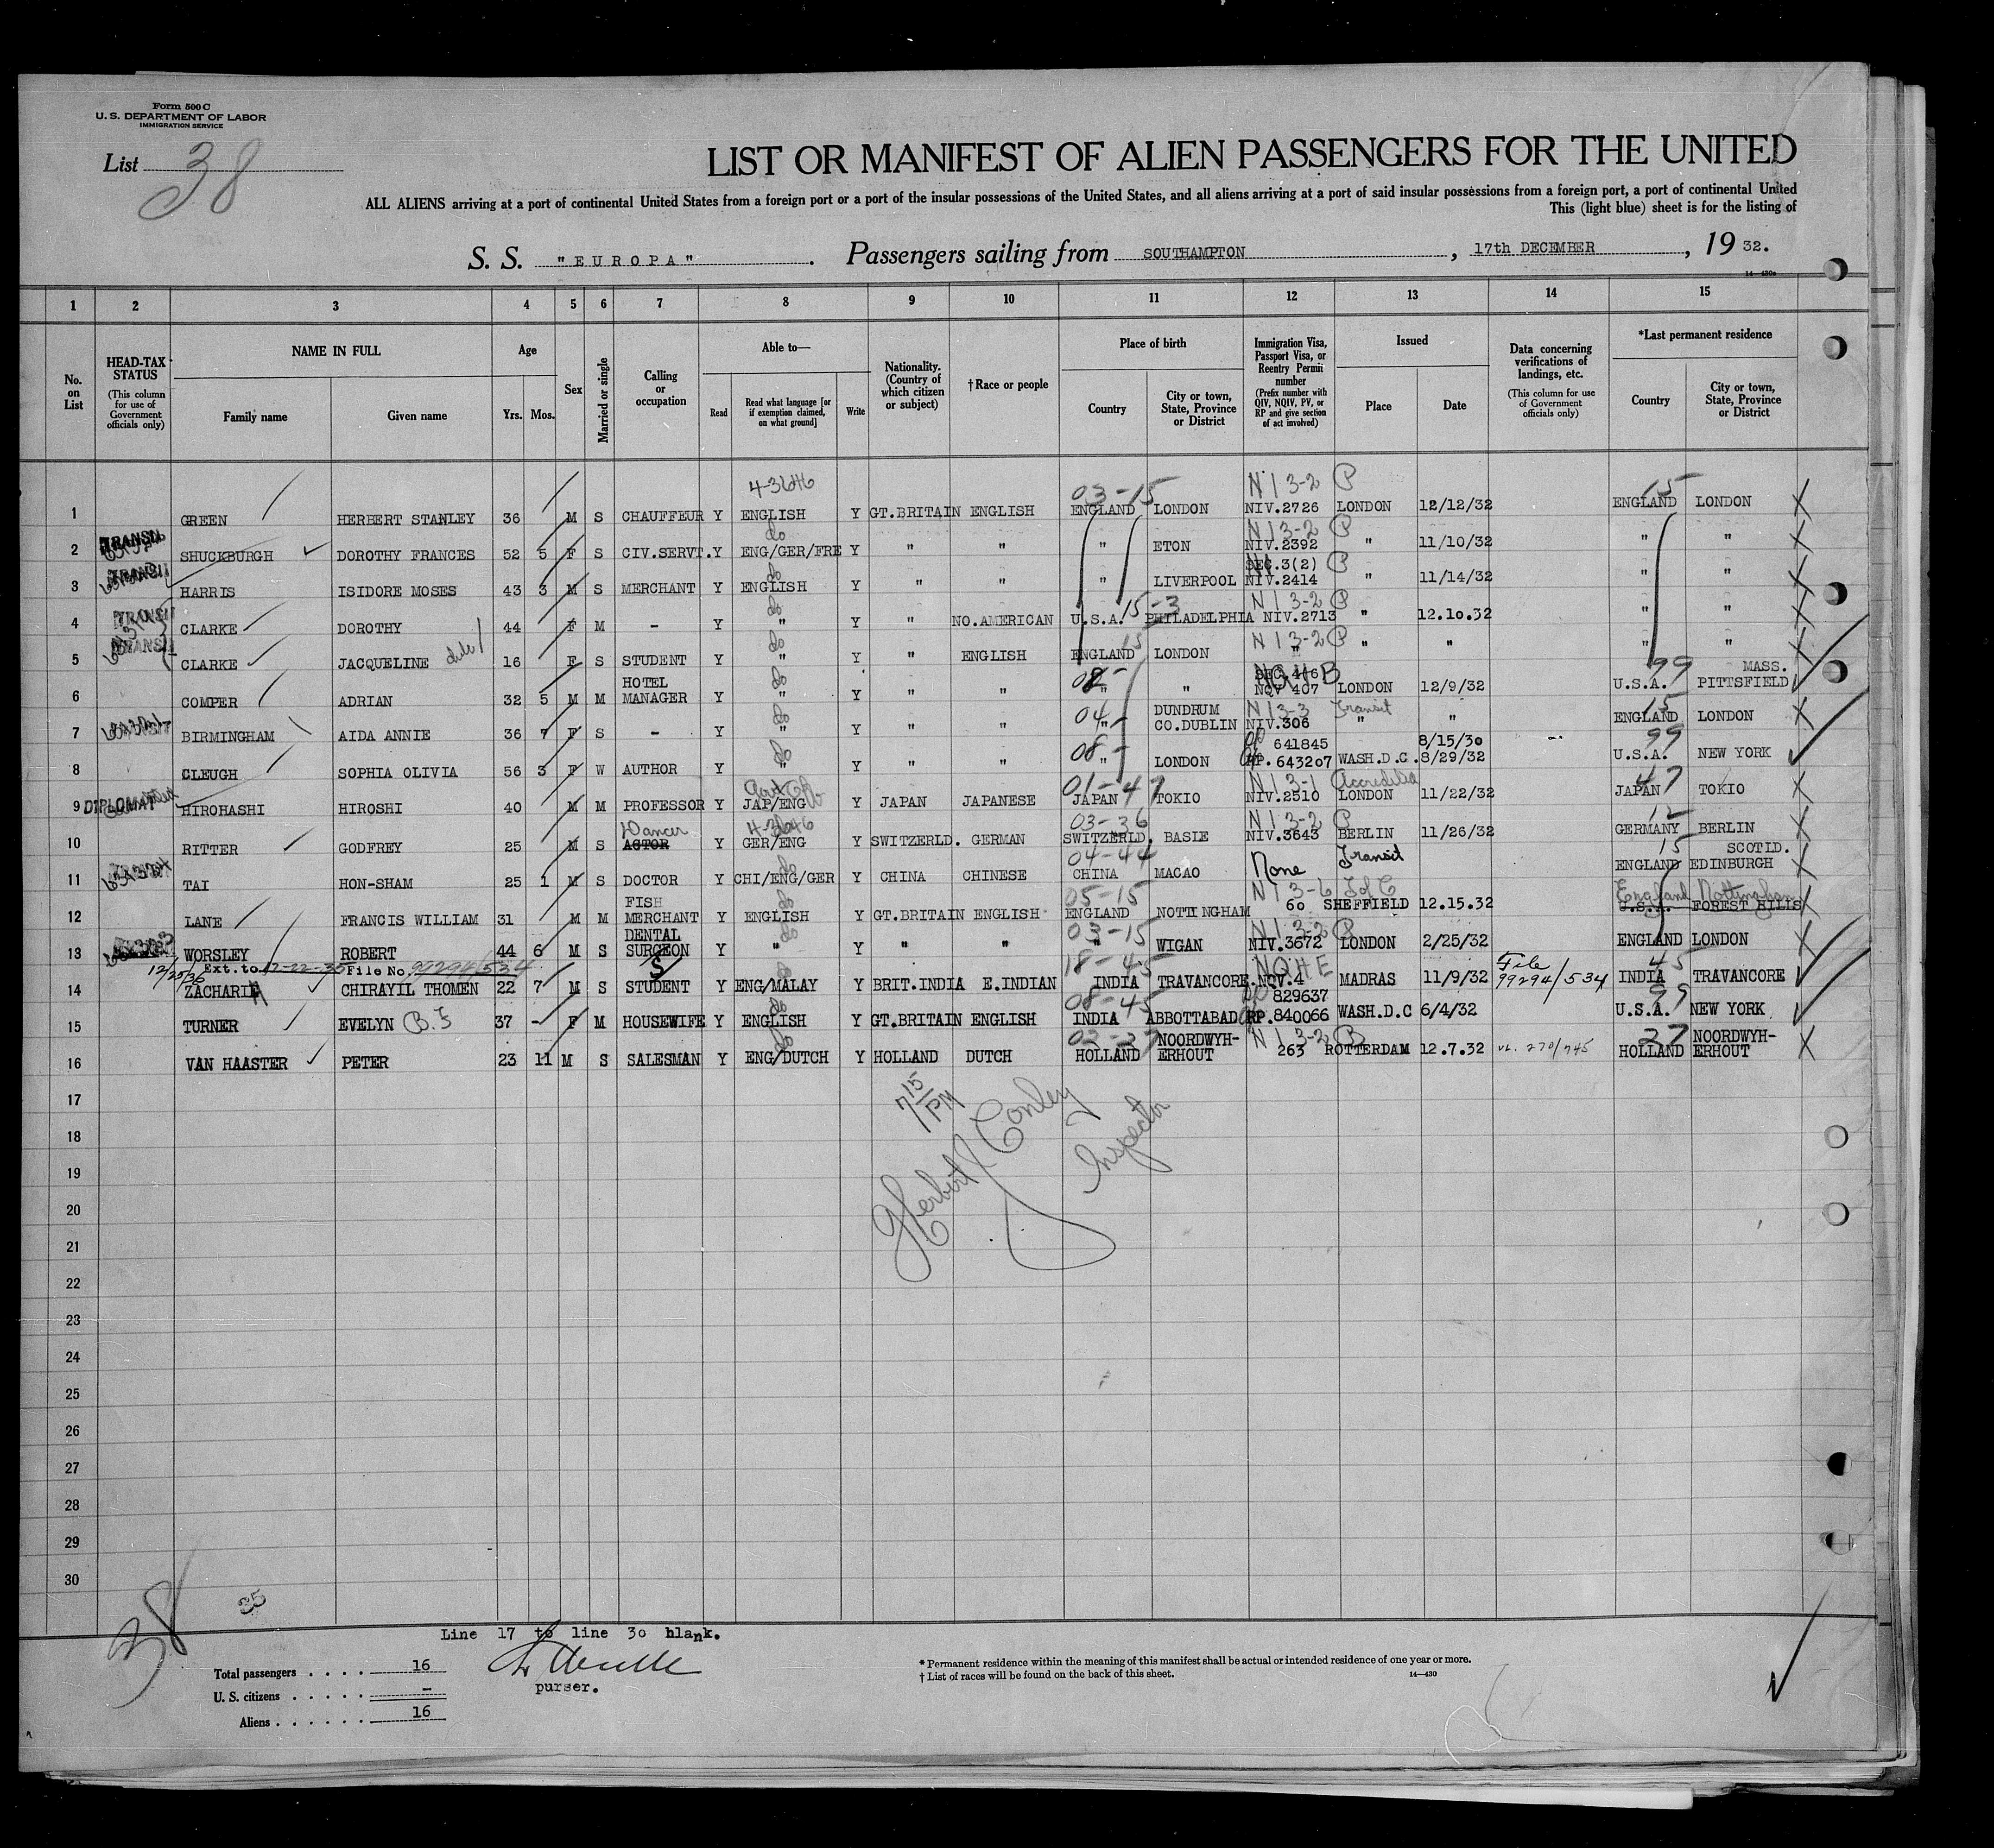 Form 500 C
U. S. DEPARTMENT OF LABOR
IMMIGRATION SERVICE
List 38
LIST OR MANIFEST OF ALIEN PASSENGERS FOR THE UNITED
ALL ALIENS arriving at a port of continental United States from a foreign port or a port of the insular possessions of the United States, and all aliens arriving at a port of said insular possessions from a foreign port, a port of continental United
This (light blue) sheet is for the listing of
S. S. "EUROPA". Passengers sailing from SOUTHAMPTON, 17th DECEMBER, 19 32.
14—430a
1 2 3 4 5 6 7 8 9 10 11 12 13 14 15
No. on List
HEAD-TAX STATUS (This column for use of Government officials only)
NAME IN FULL Family name Given name
Age Yrs. Mos.
Sex
Married or single
Calling or occupation
Able to— Read Read what language [or if exemption claimed, on what ground] Write
Nationality. (Country of which citizen or subject)
†Race or people
Place of birth Country City or town, State, Province or District
Immigration Visa, Passport Visa, or Reentry Permit number (Prefix number with QIV, NQIV, PV, or RP and give section of act involved)
Issued Place Date
Data concerning verifications of landings, etc. (This column for use of Government officials only)
*Last permanent residence Country City or town, State, Province or District
4-3646 03-15 N I 3-2 P 15
1 GREEN HERBERT STANLEY 36 M S CHAUFFEUR Y ENGLISH Y GT.BRITAIN ENGLISH ENGLAND LONDON NIV.2726 LONDON 12/12/32 ENGLAND LONDON X
TRANSIT do N I 3-2 P
2 SHUCKBURGH DOROTHY FRANCES 52 5 F S CIV.SERVT. Y ENG/GER/FRE Y " " " ETON NIV.2392 " 11/10/32 " " X
TRANSIT do SEC.3(2) P
3 HARRIS ISIDORE MOSES 43 3 M S MERCHANT Y ENGLISH Y " " " LIVERPOOL NIV.2414 " 11/14/32 " " X
TRANSIT do 15-3 N I 3-2 P
4 CLARKE DOROTHY 44 F M - Y " Y " NO.AMERICAN U.S.A. PHILADELPHIA NIV.2713 " 12.10.32 " " X
TRANSIT do 15 N I 3-2 P
5 CLARKE JACQUELINE 16 F S STUDENT Y " Y " ENGLISH ENGLAND LONDON " " " " " X
HOTEL do 08- SEC.4(6) 99 MASS.
6 COMPER ADRIAN 32 5 M M MANAGER Y " Y " " " " NQV 407 LONDON 12/9/32 U.S.A. PITTSFIELD
do 04 DUNDRUM N I 3-3 Transit 15
7 BIRMINGHAM AIDA ANNIE 36 7 F S - Y " Y " " " CO.DUBLIN NIV.306 " " ENGLAND LONDON X
do 08- 641845 8/15/30 99
8 CLEUGH SOPHIA OLIVIA 56 3 F W AUTHOR Y " Y " " " LONDON RP.643207 WASH.D.C. 8/29/32 U.S.A. NEW YORK
01-47 N I 3-1 47
9 DIPLOMAT HIROHASHI HIROSHI 40 M M PROFESSOR Y JAP/ENG Y JAPAN JAPANESE JAPAN TOKIO NIV.2510 LONDON 11/22/32 JAPAN TOKIO X
Dancer 4-3646 03-36 N I 3-2 P 12
10 RITTER GODFREY 25 M S ACTOR Y GER/ENG Y SWITZERLD. GERMAN SWITZERLD. BASLE NIV.3643 BERLIN 11/26/32 GERMANY BERLIN X
do 04-44 Transit 15 SCOTLD.
11 TAI HON-SHAM 25 1 M S DOCTOR Y CHI/ENG/GER Y CHINA CHINESE CHINA MACAO None ENGLAND EDINBURGH X
FISH do 05-15 N I 3-6 England Nottingham
12 LANE FRANCIS WILLIAM 31 M M MERCHANT Y ENGLISH Y GT.BRITAIN ENGLISH ENGLAND NOTTINGHAM 60 SHEFFIELD 12.15.32 U.S.A. FOREST HILLS X
DENTAL do 03-15 N I 3-2 P
13 WORSLEY ROBERT 44 6 M S SURGEON Y " Y " " " WIGAN NIV.3672 LONDON 2/25/32 ENGLAND LONDON X
12/25/36 Ext.to 12-22-35 File No. 99294/534 S 18-45 File 45
14 ZACHARIA CHIRAYIL THOMEN 22 7 M S STUDENT Y ENG/MALAY Y BRIT.INDIA E.INDIAN INDIA TRAVANCORE. NQV.4 MADRAS 11/9/32 99294/534 INDIA TRAVANCORE
do 08-45 829637 99
15 TURNER EVELYN 37 - F M HOUSEWIFE Y ENGLISH Y GT.BRITAIN ENGLISH INDIA ABBOTTABAD RP.840066 WASH.D.C 6/4/32 U.S.A. NEW YORK
do 02-27 NOORDWYH- N I 3-2 P 27 NOORDWYH-
16 VAN HAASTER PETER 23 11 M S SALESMAN Y ENG/DUTCH Y HOLLAND DUTCH HOLLAND ERHOUT 263 ROTTERDAM 12.7.32 HOLLAND ERHOUT X
17
7 15 PM
Herbert Conley
Inspector
18
19
20
21
22
23
24
25
26
27
28
29
30
38 35
Line 17 to line 30 blank.
Total passengers . . . . 16
U. S. citizens . . . . . —
purser.
Aliens . . . . . . 16
* Permanent residence within the meaning of this manifest shall be actual or intended residence of one year or more.
† List of races will be found on the back of this sheet. 14—430